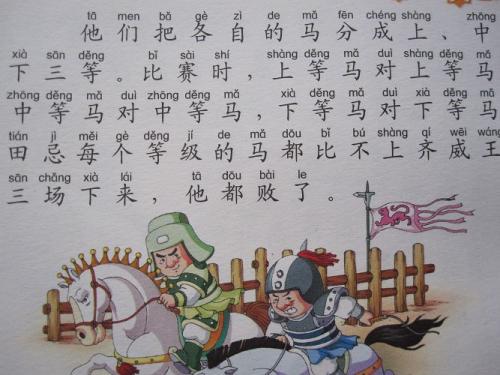 tā men bǎ gè zì de mǎ fēn chéng shàng zhōng
他们把各自的马分成上、中
xià sān děng bǐ sài shí shàng děng mǎ duì shàng děng mǎ
下三等。比赛时，上等马对上等马
zhōng děng mǎ duì zhōng děng mǎ xià děng mǎ duì xià děng mǎ
中等马对中等马，下等马对下等马
tián jì měi gè děng jí de mǎ dōu bǐ bú shàng qí wēi wáng
田忌每个等级的马都比不上齐威王
sān chǎng xià lái tā dōu bài le
三场下来，他都败了。